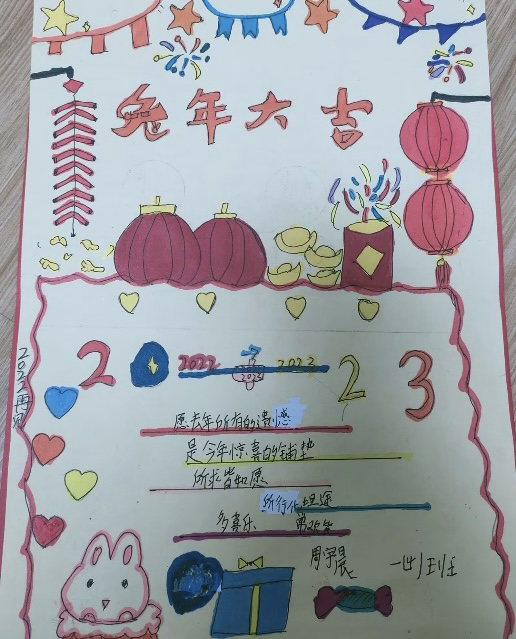 兔年大吉
2022再见
2 2022 2023 2 3
愿去年所有的遗憾
是今年惊喜的铺垫
所求皆如愿
所行化坦途
多喜乐
周宇晨 一(4)班